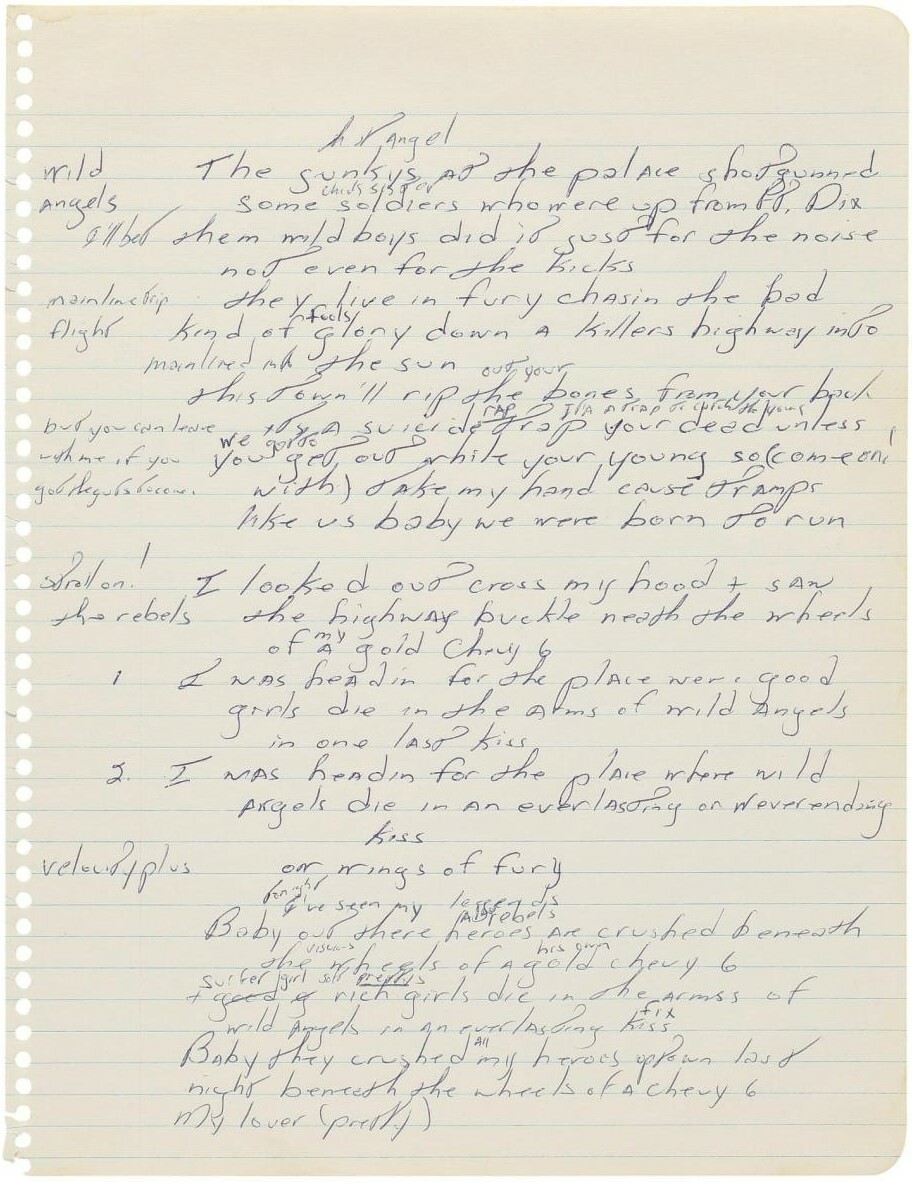 Angel
wild The gunkys at the palace shotgunned
Angels some soldiers who were up from Ft. Dix
I'll bet them wild boys did it just for the noise
not even for the kicks
mainline trip they live in fury chasin the bad
flight kind of glory down a killers highway into
mainlined into the sun out your
this town'll rip the bones from your back
rap It's a trap to catch the young
but you can leave it's a suicide trap your dead unless
we gotto
with me if you you get out while your young so (come on!
got the guts with) take my hand cause tramps
like us baby we were born to run
I looked out cross my hood + saw
the rebels the highway buckle neath the wheels
my
of a gold Chevy 6
1 I was headin for the place were good
girls die in the arms of wild Angels
in one last kiss
2. I was headin for the place where wild
Angels die in an everlasting or never ending
kiss
velocity plus on wings of fury
tonight
I've seen my legends
rebels
Baby out there heroes are crushed beneath
visions his own
the wheels of a gold chevy 6
surfer girl
+ good rich girls die in the armss of
fix
wild Angels in an everlasting kiss
All
Baby they crushed my heroes uptown last
night beneath the wheels of a Chevy 6
My lover (pretty)